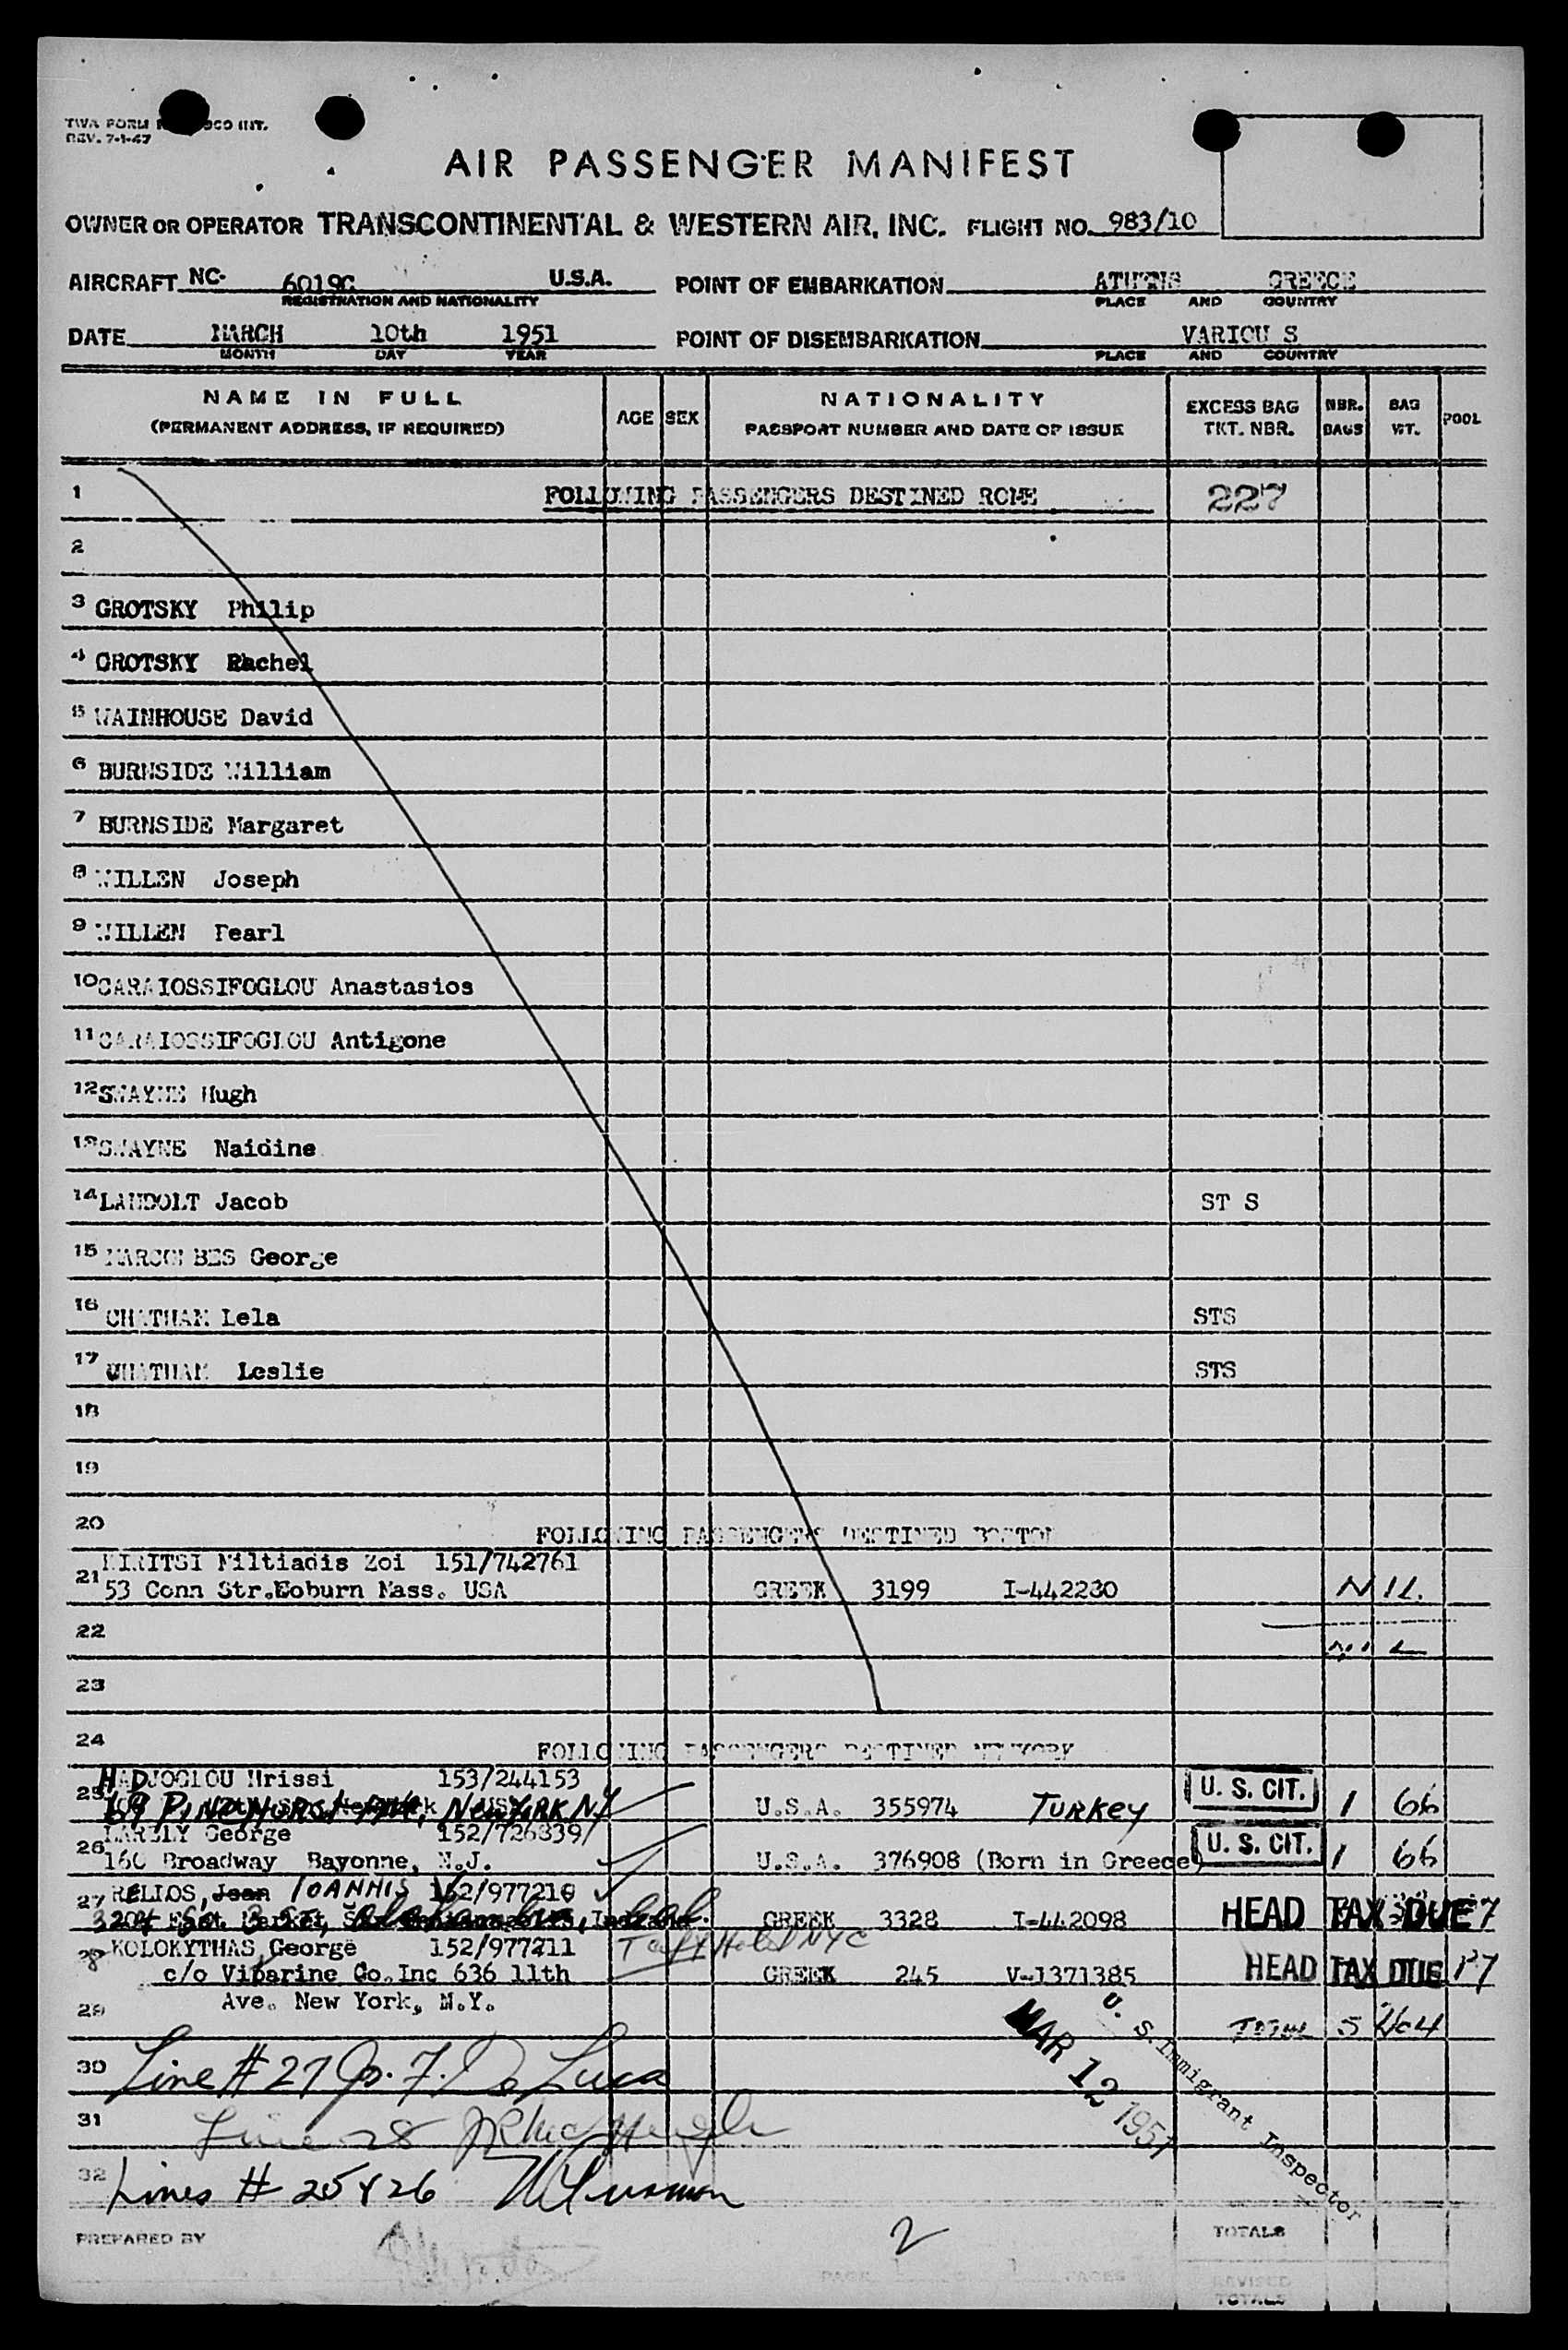 REV. 7-1-47
AIR PASSENGER MANIFEST
OWNER OR OPERATOR TRANSCONTINENTAL & WESTERN AIR, INC. FLIGHT NO. 983/10
AIRCRAFT NC- 6019C U.S.A. POINT OF EMBARKATION ATHENS GREECE
REGISTRATION AND NATIONALITY PLACE AND COUNTRY
DATE MARCH 10th 1951 POINT OF DISEMBARKATION VARIOU S
MONTH DAY YEAR PLACE AND COUNTRY
NAME IN FULL AGE SEX NATIONALITY EXCESS BAG NBR. BAG POOL
(PERMANENT ADDRESS, IF REQUIRED) PASSPORT NUMBER AND DATE OF ISSUE TKT. NBR. BAGS WT.
1 FOLLOWING PASSENGERS DESTINED ROME 227
2
3 GROTSKY Philip
4 GROTSKY Rachel
5 WAINHOUSE David
6 BURNSIDE William
7 BURNSIDE Margaret
8 WILLEN Joseph
9 WILLEN Pearl
10 CARAIOSSIFOGLOU Anastasios
11 CARAIOSSIFOGLOU Antigone
12 SWAYNE Hugh
13 SWAYNE Naidine
14 LANDOLT Jacob ST S
15 George
16 CHATHAM Lela STS
17 CHATHAM Leslie STS
18
19
20 FOLLOWING PASSENGERS DESTINED BOSTON
KIRITSI Miltiadis Zoi 151/742761
21 53 Conn Str. Woburn Mass. USA GREEK 3199 I-442230 NIL.
22 NIL
23
24 FOLLOWING PASSENGERS DESTINED NEWYORK
HADJOGLOU Hrissi 153/244153
25 69 PINEHURST AVE, NEW YORK NY U.S.A. 355974 TURKEY U. S. CIT. 1 66
George 152/726839
26 160 Broadway Bayonne, N.J. U.S.A. 376908 (Born in Greece) U. S. CIT. 1 66
27 RELIOS, Jean IOANNIS 152/977210
East Market, GREEK 3328 I-442098 HEAD TAX DUE
28 KOLOKYTHAS George 152/977211 Taft Hotel NYC
c/o Viparine Co.Inc 636 11th GREEK 245 V-1371385 HEAD TAX DUE
29 Ave. New York, N.Y. TOTAL 5
MAR 12 1951
U. S. Immigrant Inspector
30 Line # 27 Jos. F. De Luca
31 Line 28
32 Lines # 25 & 26
PREPARED BY 2 TOTALS
PAGE PAGES REVISED
TOTALS